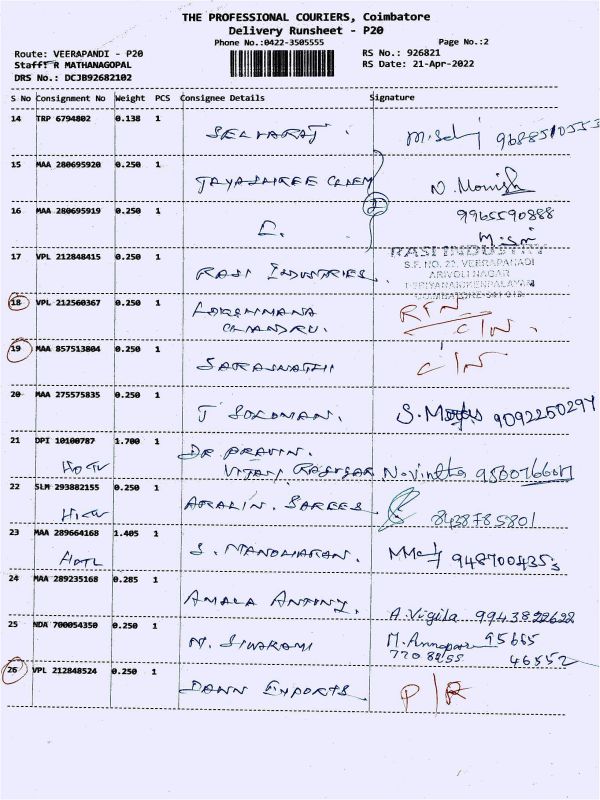 THE PROFESSIONAL COURIERS, Coimbatore
Delivery Runsheet - P20
Phone No.:0422-3505555 Page No.:2
Route: VEERAPANDI - P20 RS No.: 926821
Staff: R MATHANAGOPAL RS Date: 21-Apr-2022
DRS No.: DCJB92682102
S No Consignment No Weight PCS Consignee Details Signature
14 TRP 6794802 0.138 1
SELVARAJ.
15 MAA 280695920 0.250 1
JAYASHREE CHEM N. Monish
16 MAA 280695919 0.250 1
9965590888
17 VPL 212848415 0.250 1 RASI INDUSTRY
S.F. NO. 22, VEERAPANADI
ARIVOLI NAGAR
RASI INDUSTRIES.
COIMBATORE-641 019
18 VPL 212560367 0.250 1
LAKSHMANA
CHANDRU. C/N.
19 MAA 857513804 0.250 1
SARASWATHI C/N
20 MAA 275575835 0.250 1
T SOLOMAN. 9092250297
21 DPI 10100787 1.700 1 DR PRAVIN.
N. Vinitha
22 SLM 293882155 0.250 1
SAREES 8438785801
23 MAA 289664168 1.405 1
S. MANOHARAN. 9487004353
24 MAA 289235168 0.285 1
AMALA ANTONY. A. Vigila 9943822622
25 NDA 700054350 0.250 1
N. SIVAKAMI 95665
46552
26 VPL 212848524 0.250 1
DAWN EXPORTS P/R